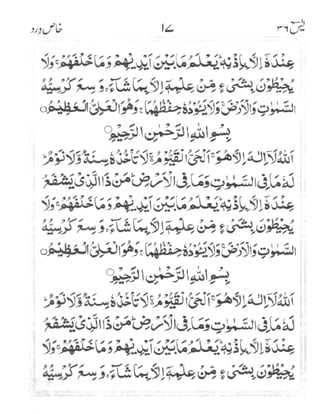 یٰسٓ ۳۶ ۱۷ خاص ورد
عِنْدَهٗۤ اِلَّا بِاِذْنِهٖ ؕ یَعْلَمُ مَا بَیْنَ اَیْدِیْهِمْ وَمَا خَلْفَهُمْ ۚ وَلَا
یُحِیْطُوْنَ بِشَیْءٍ مِّنْ عِلْمِهٖۤ اِلَّا بِمَا شَآءَ ۚ وَسِعَ كُرْسِیُّهُ
السَّمٰوٰتِ وَالْاَرْضَ ۚ وَلَا یَـُٔوْدُهٗ حِفْظُهُمَا ۚ وَهُوَ الْعَلِیُّ الْعَظِیْمُ ○
بِسْمِ اللهِ الرَّحْمٰنِ الرَّحِیْمِ ○
اَللهُ لَاۤ اِلٰهَ اِلَّا هُوَ ۚ اَلْحَیُّ الْقَیُّوْمُ ۚ لَا تَاْخُذُهٗ سِنَةٌ وَّلَا نَوْمٌ ؕ
لَهٗ مَا فِی السَّمٰوٰتِ وَمَا فِی الْاَرْضِ ؕ مَنْ ذَا الَّذِیْ یَشْفَعُ
عِنْدَهٗۤ اِلَّا بِاِذْنِهٖ ؕ یَعْلَمُ مَا بَیْنَ اَیْدِیْهِمْ وَمَا خَلْفَهُمْ ۚ وَلَا
یُحِیْطُوْنَ بِشَیْءٍ مِّنْ عِلْمِهٖۤ اِلَّا بِمَا شَآءَ ۚ وَسِعَ كُرْسِیُّهُ
السَّمٰوٰتِ وَالْاَرْضَ ۚ وَلَا یَـُٔوْدُهٗ حِفْظُهُمَا ۚ وَهُوَ الْعَلِیُّ الْعَظِیْمُ ○
بِسْمِ اللهِ الرَّحْمٰنِ الرَّحِیْمِ ○
اَللهُ لَاۤ اِلٰهَ اِلَّا هُوَ ۚ اَلْحَیُّ الْقَیُّوْمُ ۚ لَا تَاْخُذُهٗ سِنَةٌ وَّلَا نَوْمٌ ؕ
لَهٗ مَا فِی السَّمٰوٰتِ وَمَا فِی الْاَرْضِ ؕ مَنْ ذَا الَّذِیْ یَشْفَعُ
عِنْدَهٗۤ اِلَّا بِاِذْنِهٖ ؕ یَعْلَمُ مَا بَیْنَ اَیْدِیْهِمْ وَمَا خَلْفَهُمْ ۚ وَلَا
یُحِیْطُوْنَ بِشَیْءٍ مِّنْ عِلْمِهٖۤ اِلَّا بِمَا شَآءَ ۚ وَسِعَ كُرْسِیُّهُ